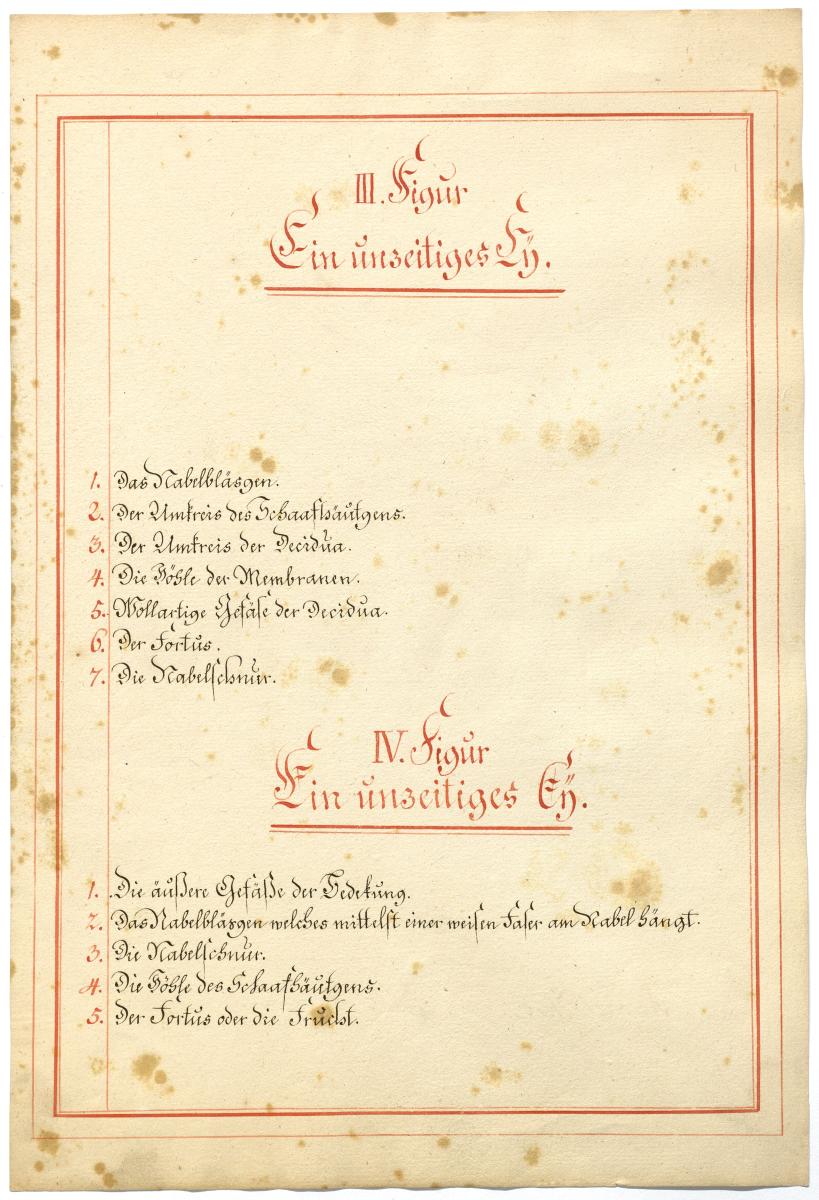 III. Figur
Ein unzeitiges Eÿ.
1. Das Nabelbläsgen.
2. Der Umkreis des Schaafhäutgens.
3. Der Umkreis der Decidua.
4. Die Höhle der Membranen.
5. Wollartige Gefäse der Decidua.
6. Der Foetus.
7. Die Nabelschnur.
IV. Figur
Ein unzeitiges Eÿ.
1. Die äußere Gefäße der Bedekung.
2. Das Nabelbläsgen welches mittelst einer weisen Faser am Nabel hängt.
3. Die Nabelschnur.
4. Die Höhle des Schaafhäutgens.
5. Der Foetus oder die Frucht.